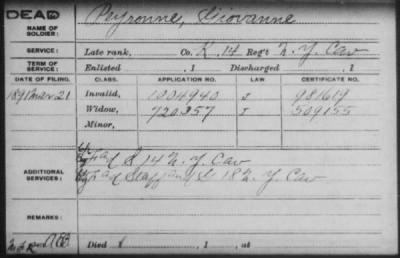 DEAD
NAME OF SOLDIER: Peyronne, Giovanne
SERVICE: Late rank, Co. K. 14 Reg't N.Y. Cav
TERM OF SERVICE: Enlisted , 1 Discharged , 1
DATE OF FILING. CLASS. APPLICATION NO. LAW. CERTIFICATE NO.
1891 Mar 21 Invalid, 1004940 J 981614
Widow, 720357 J 509155
Minor,
ADDITIONAL SERVICES: 14 N.Y. Cav
18 N.Y. Cav
REMARKS:
Died , 1 , at